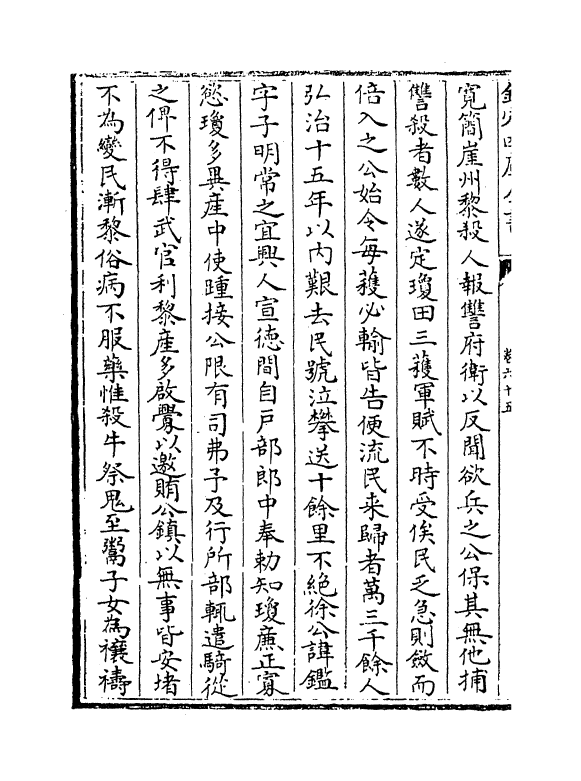 欽定四庫全書
卷六十五
寛簡崖州黎殺人報讐府衛以反聞欲兵之公保其無他捕
讐殺者數人遂定瓊田三穫軍賦不時受俟民乏急則斂而
倍入之公始令每穫必輸皆告便流民来歸者萬三千餘人
弘治十五年以内艱去民號泣攀送十餘里不絶徐公諱鑑
字子明常之宜興人宣徳間自戸部郎中奉勅知瓊廉正寡
慾瓊多異産中使踵接公限有司弗予及行所部輒遣騎從
之俾不得肆武官利黎産多啟釁以邀賄公鎮以無事皆安堵
不為變民漸黎俗病不服藥惟殺牛祭鬼至鬻子女為禳禱